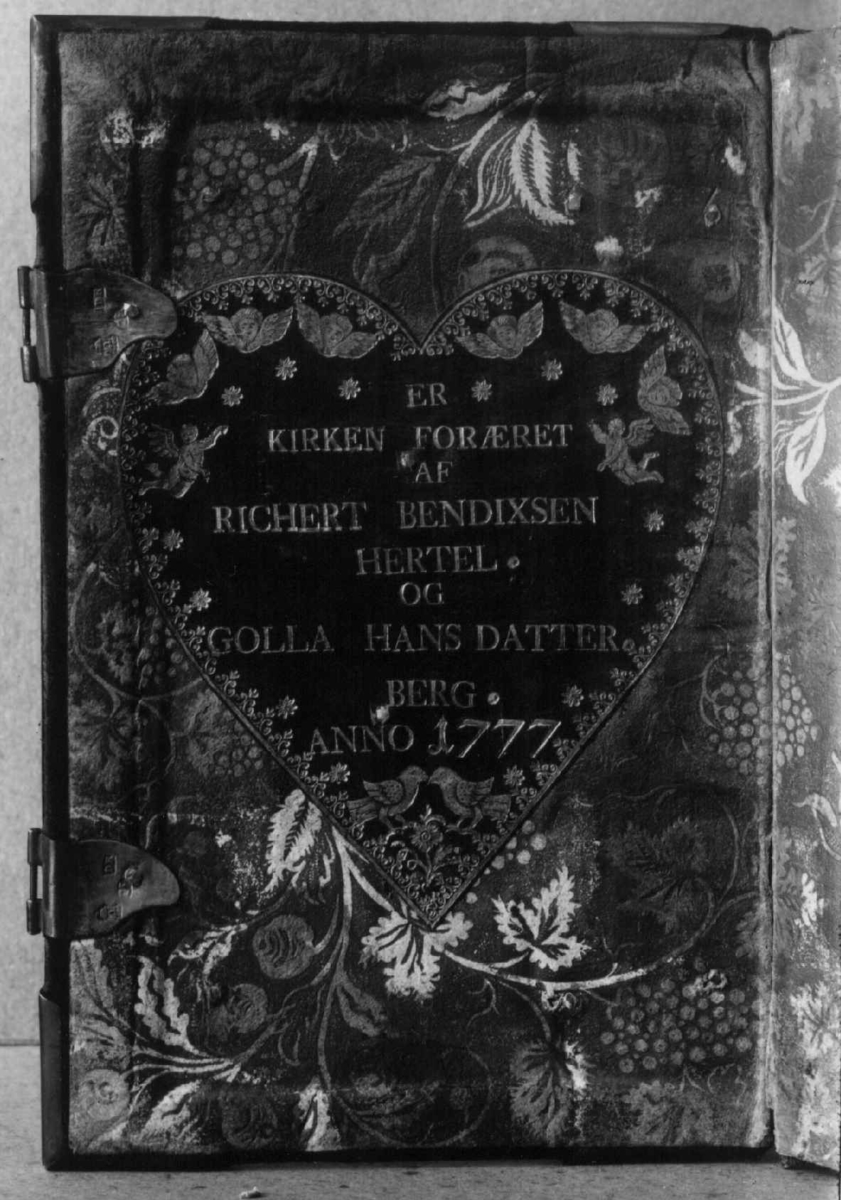 ER
KIRKEN FORÆRET
AF
RICHERT BENDIXSEN
HERTEL.
OG
GOLLA HANS DATTER.
BERG.
ANNO 1777